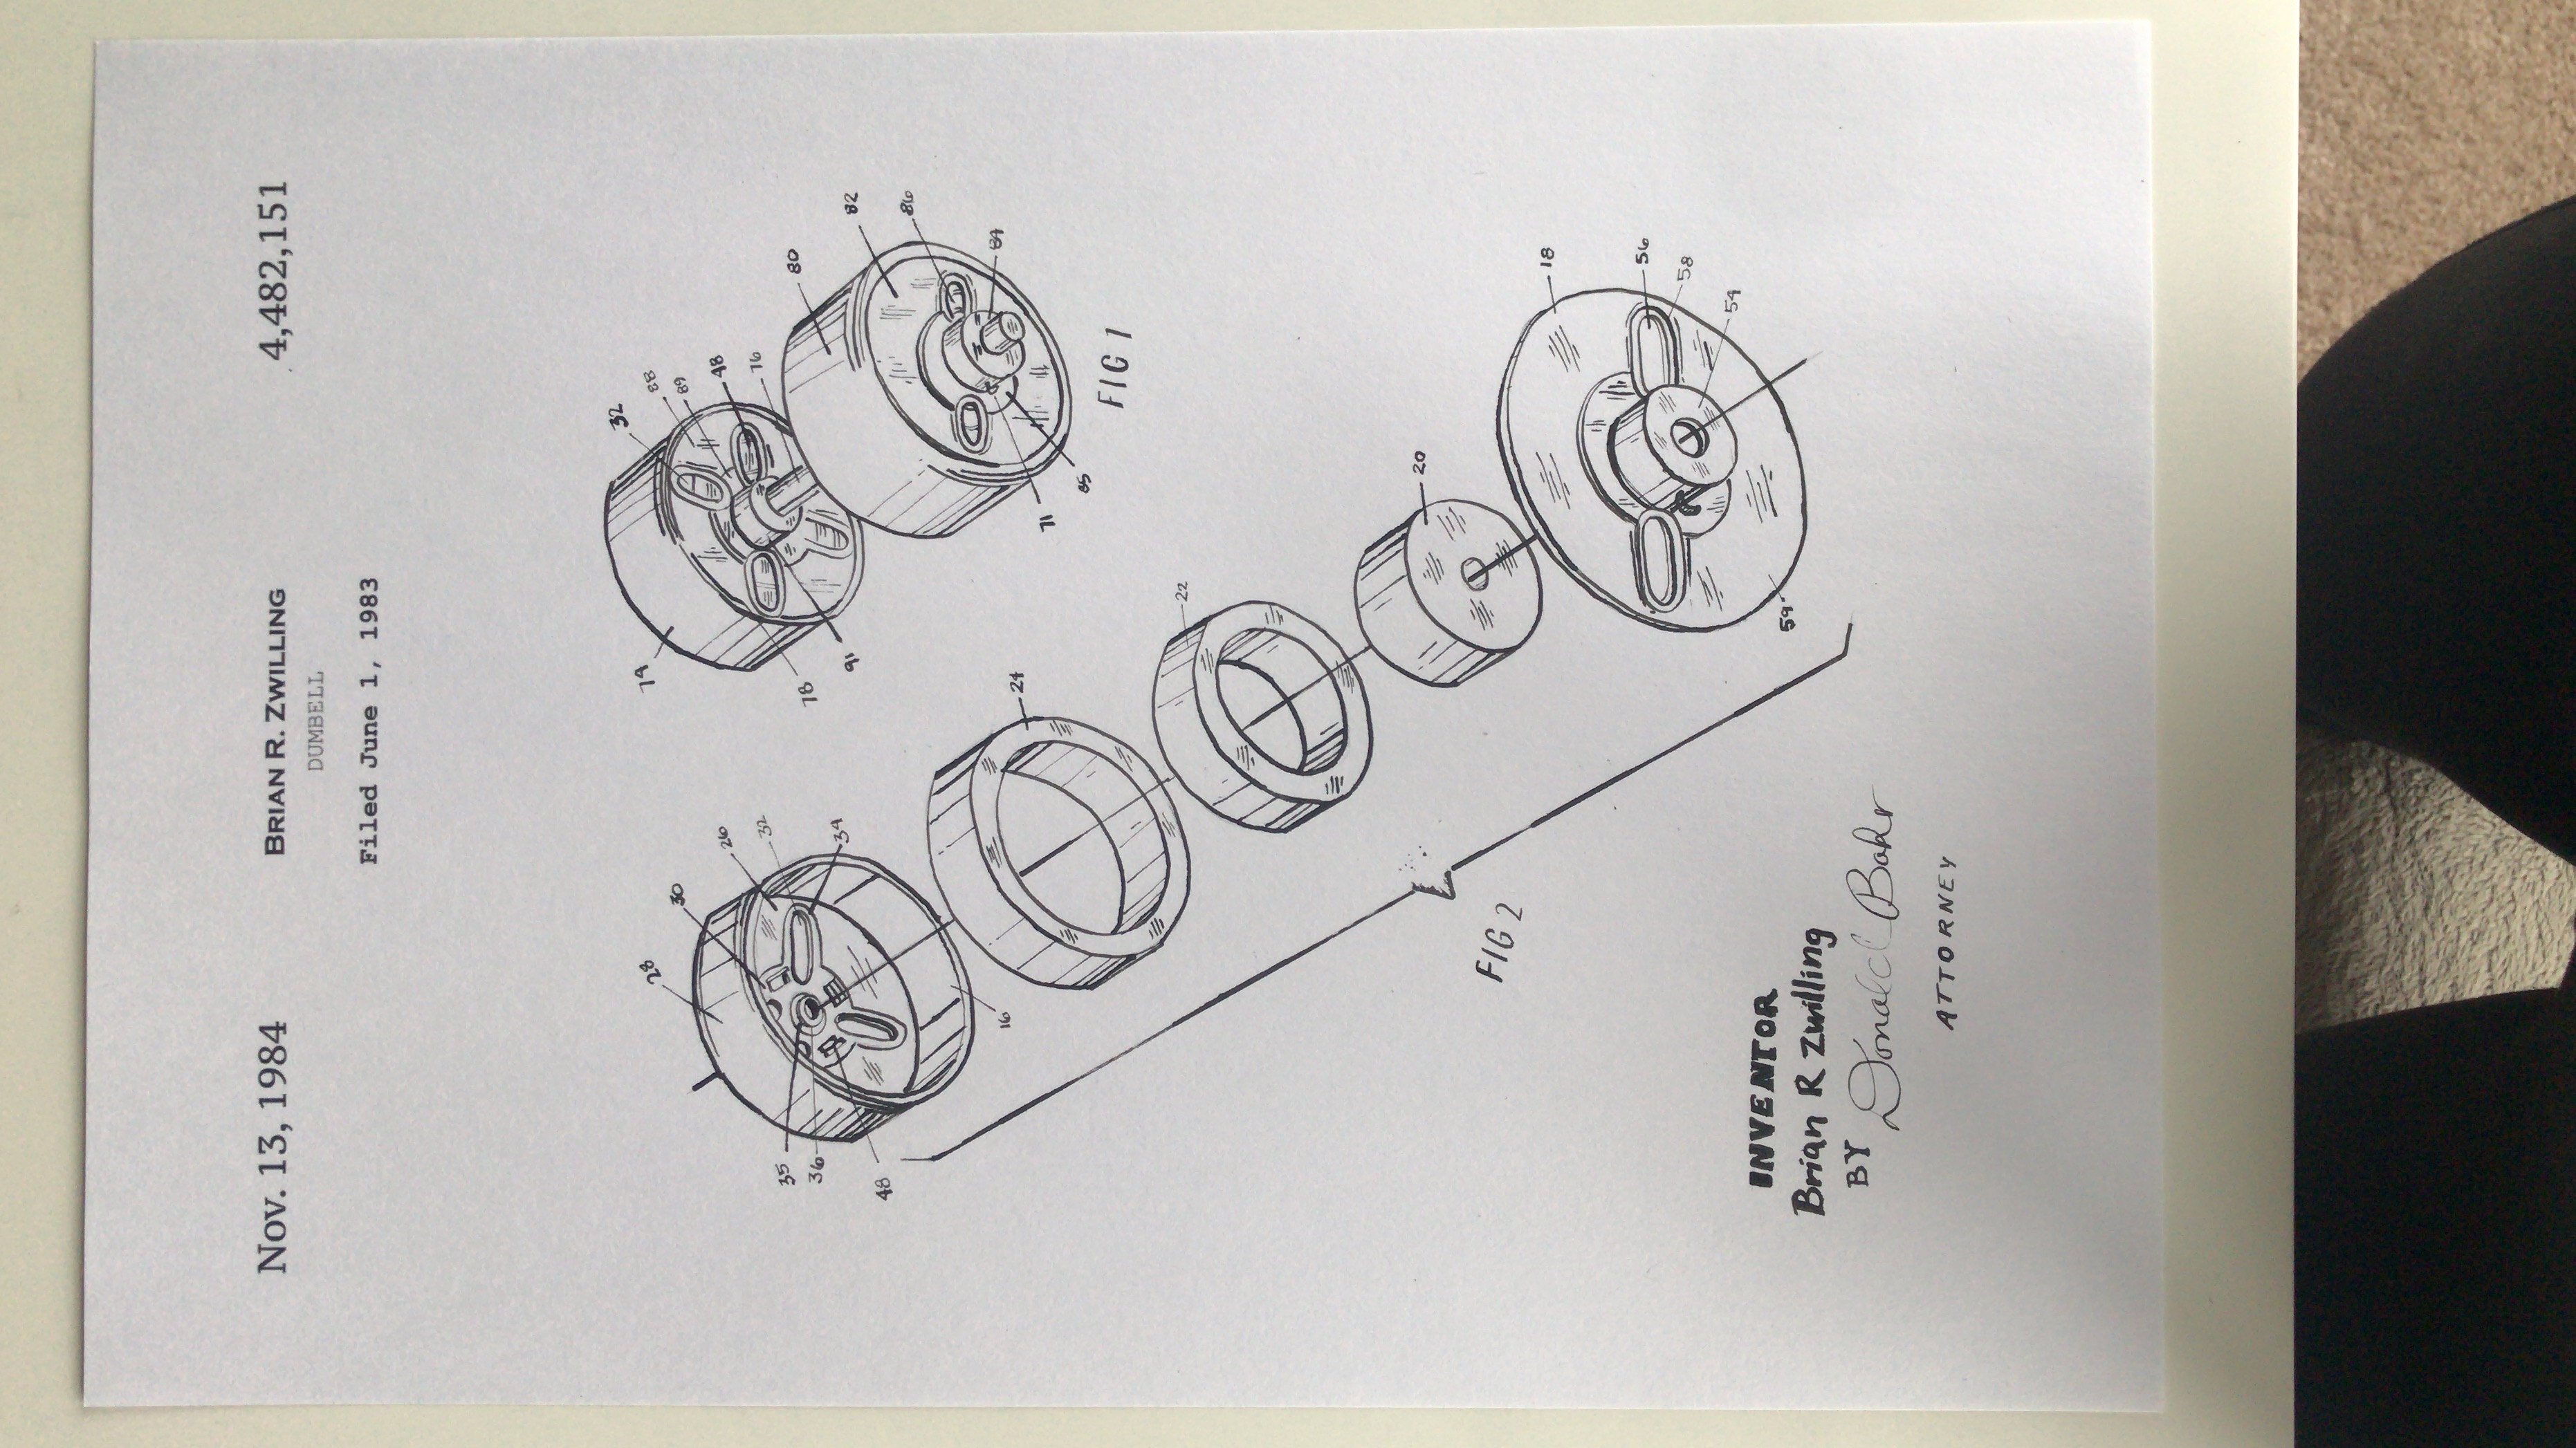 Nov. 13, 1984
BRIAN R. ZWILLING
4,482,151
DUMBELL
Filed June 1, 1983
28
30
26
32
35
36
34
48
16
24
22
20
18
56
58
54
59
FIG 2
74
32
88
89
48
76
78
91
80
82
86
84
71
85
FIG 1
INVENTOR
Brian R Zwilling
BY Donald Bahr
ATTORNEY